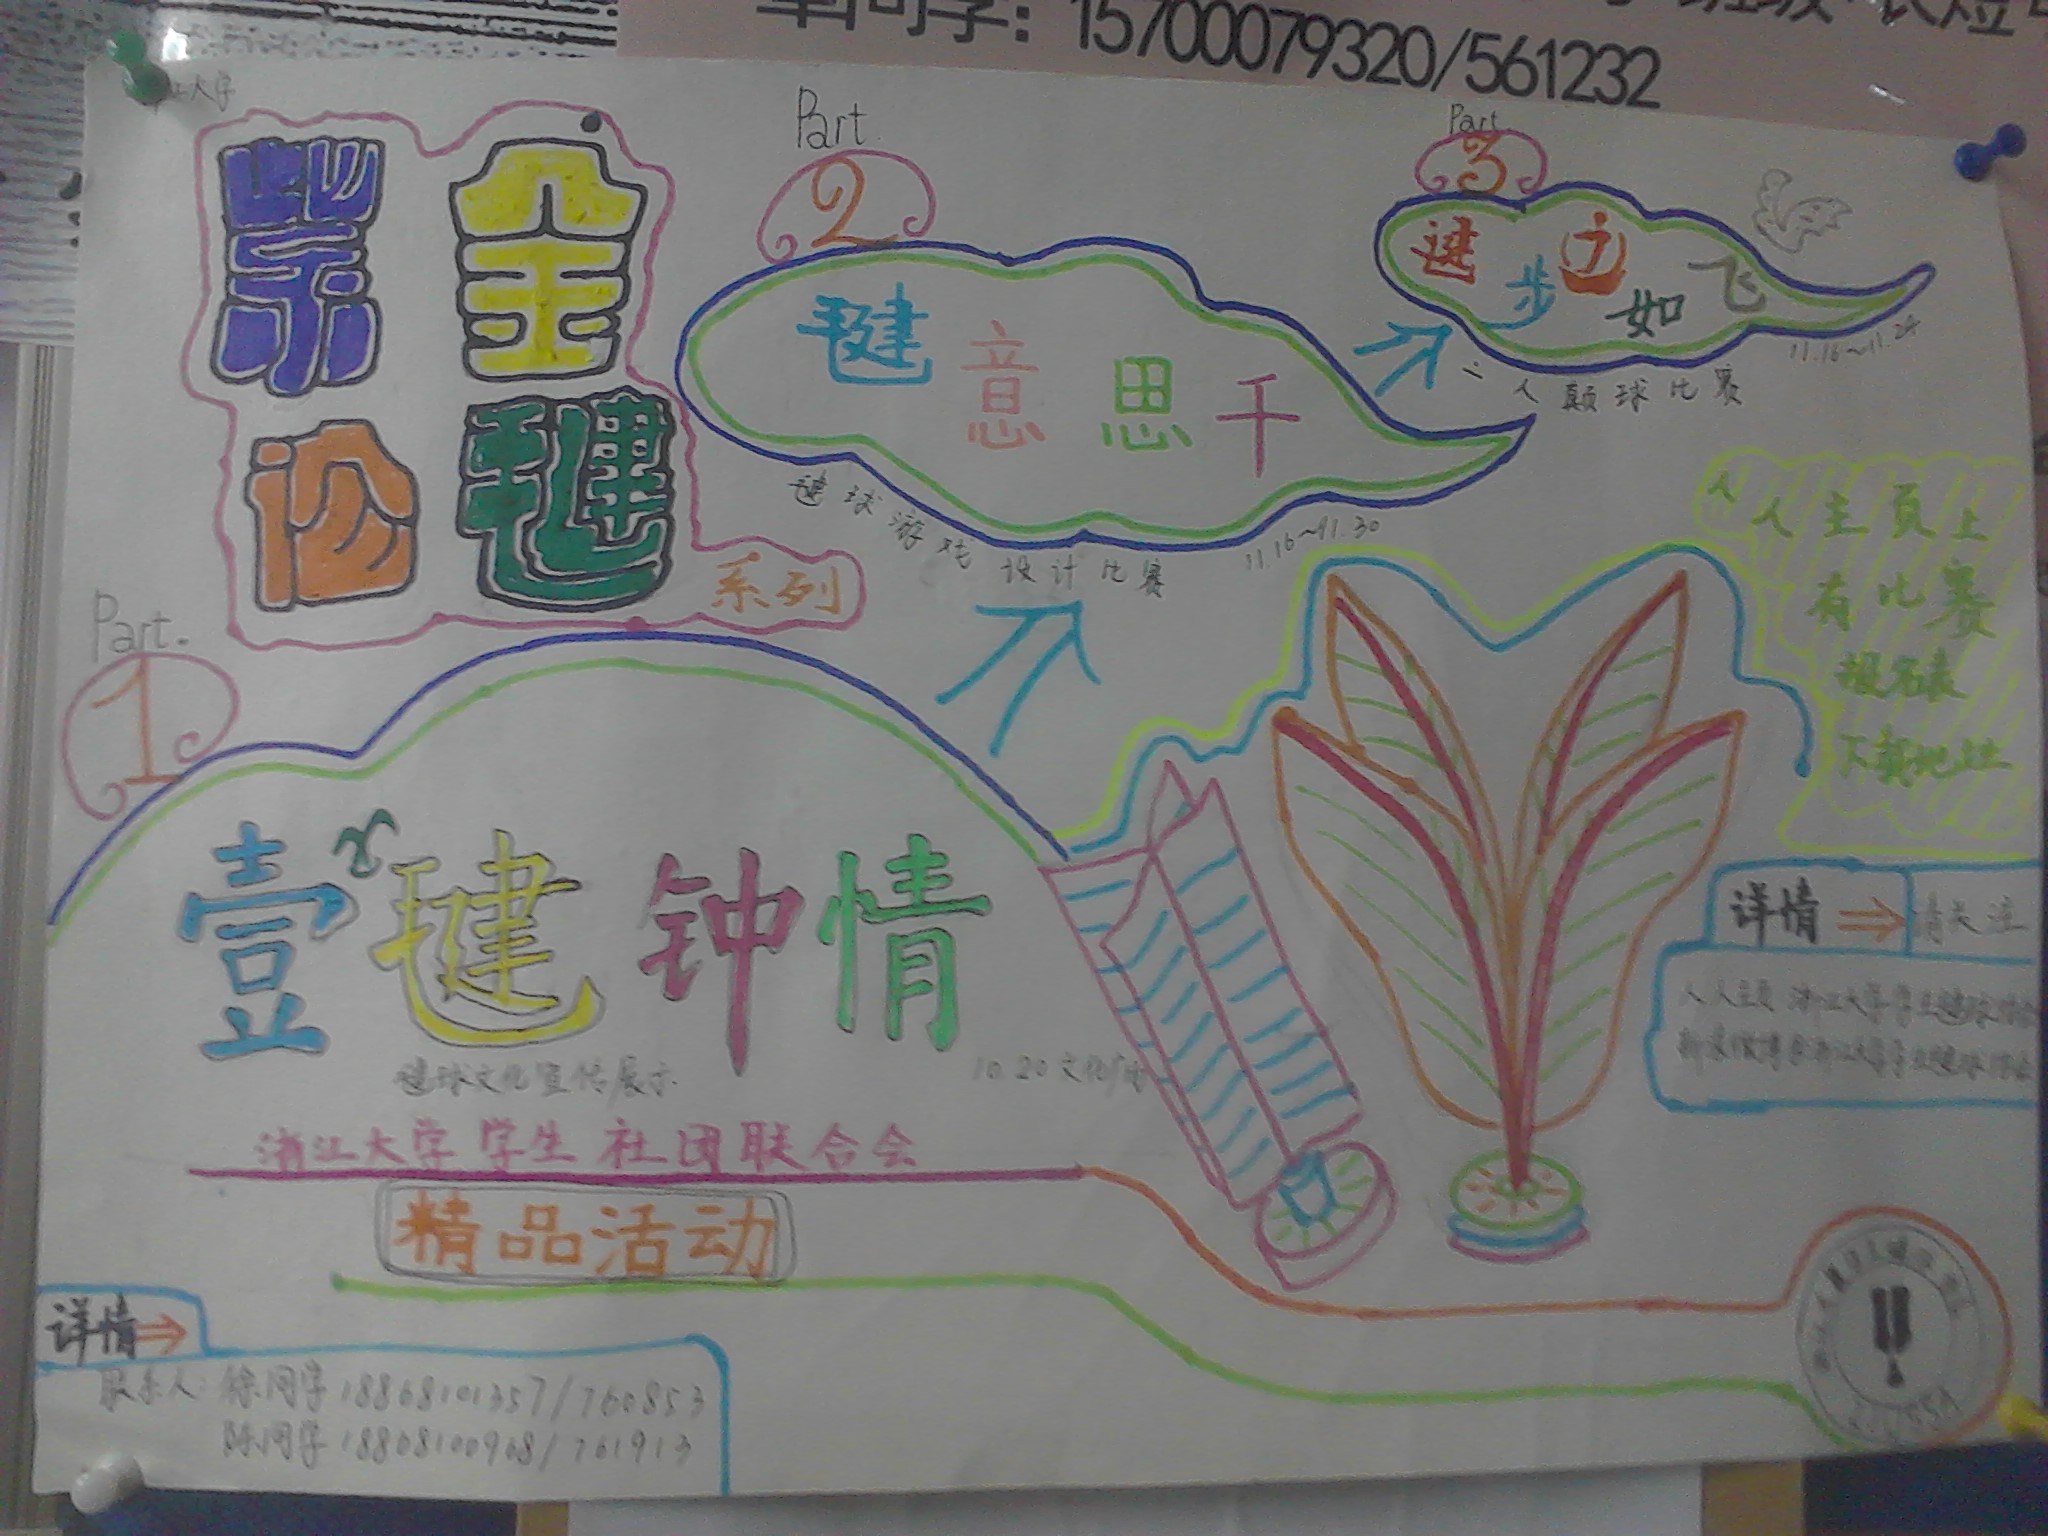 15700079320/561232
江大学
紫金
论毽
系列
Part
2
毽意思千
毽球游戏设计比赛
11.16~11.30
Part
3
毽步如飞
二人颠球比赛
11.16~11.24
人人主页上
有比赛
报名表
下载地址
Part.
1
壹x毽钟情
毽球文化宣传展示
10.20文化广场
浙江大学学生社团联合会
精品活动
详情⇒请关注
人人主页 浙江大学学生毽球协会
新浪微博@浙江大学学生毽球协会
详情⇒
联系人：徐同学 18868101357/760853
陈同学 18868100968/761913